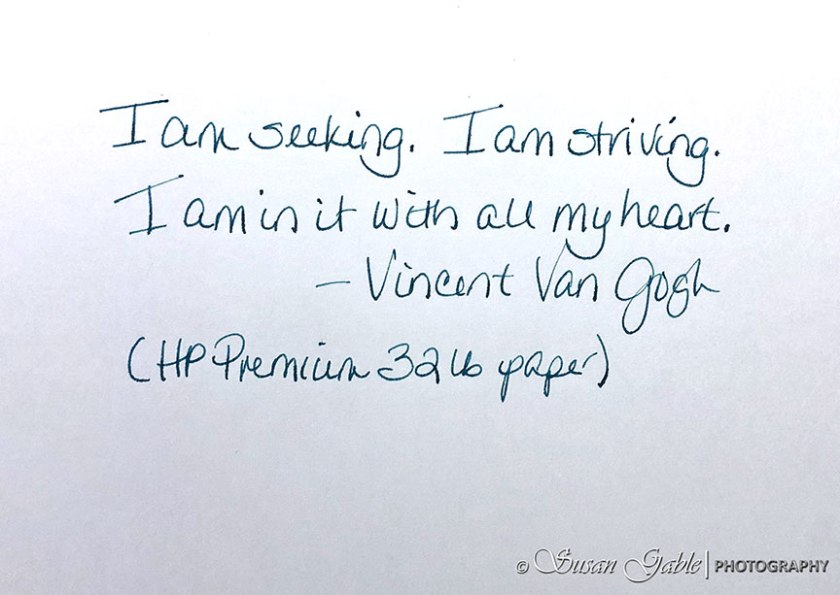 I am seeking. I am striving.
I am in it with all my heart.
– Vincent Van Gogh
(HP Premium 32 lb paper)
© Susan Gable | PHOTOGRAPHY